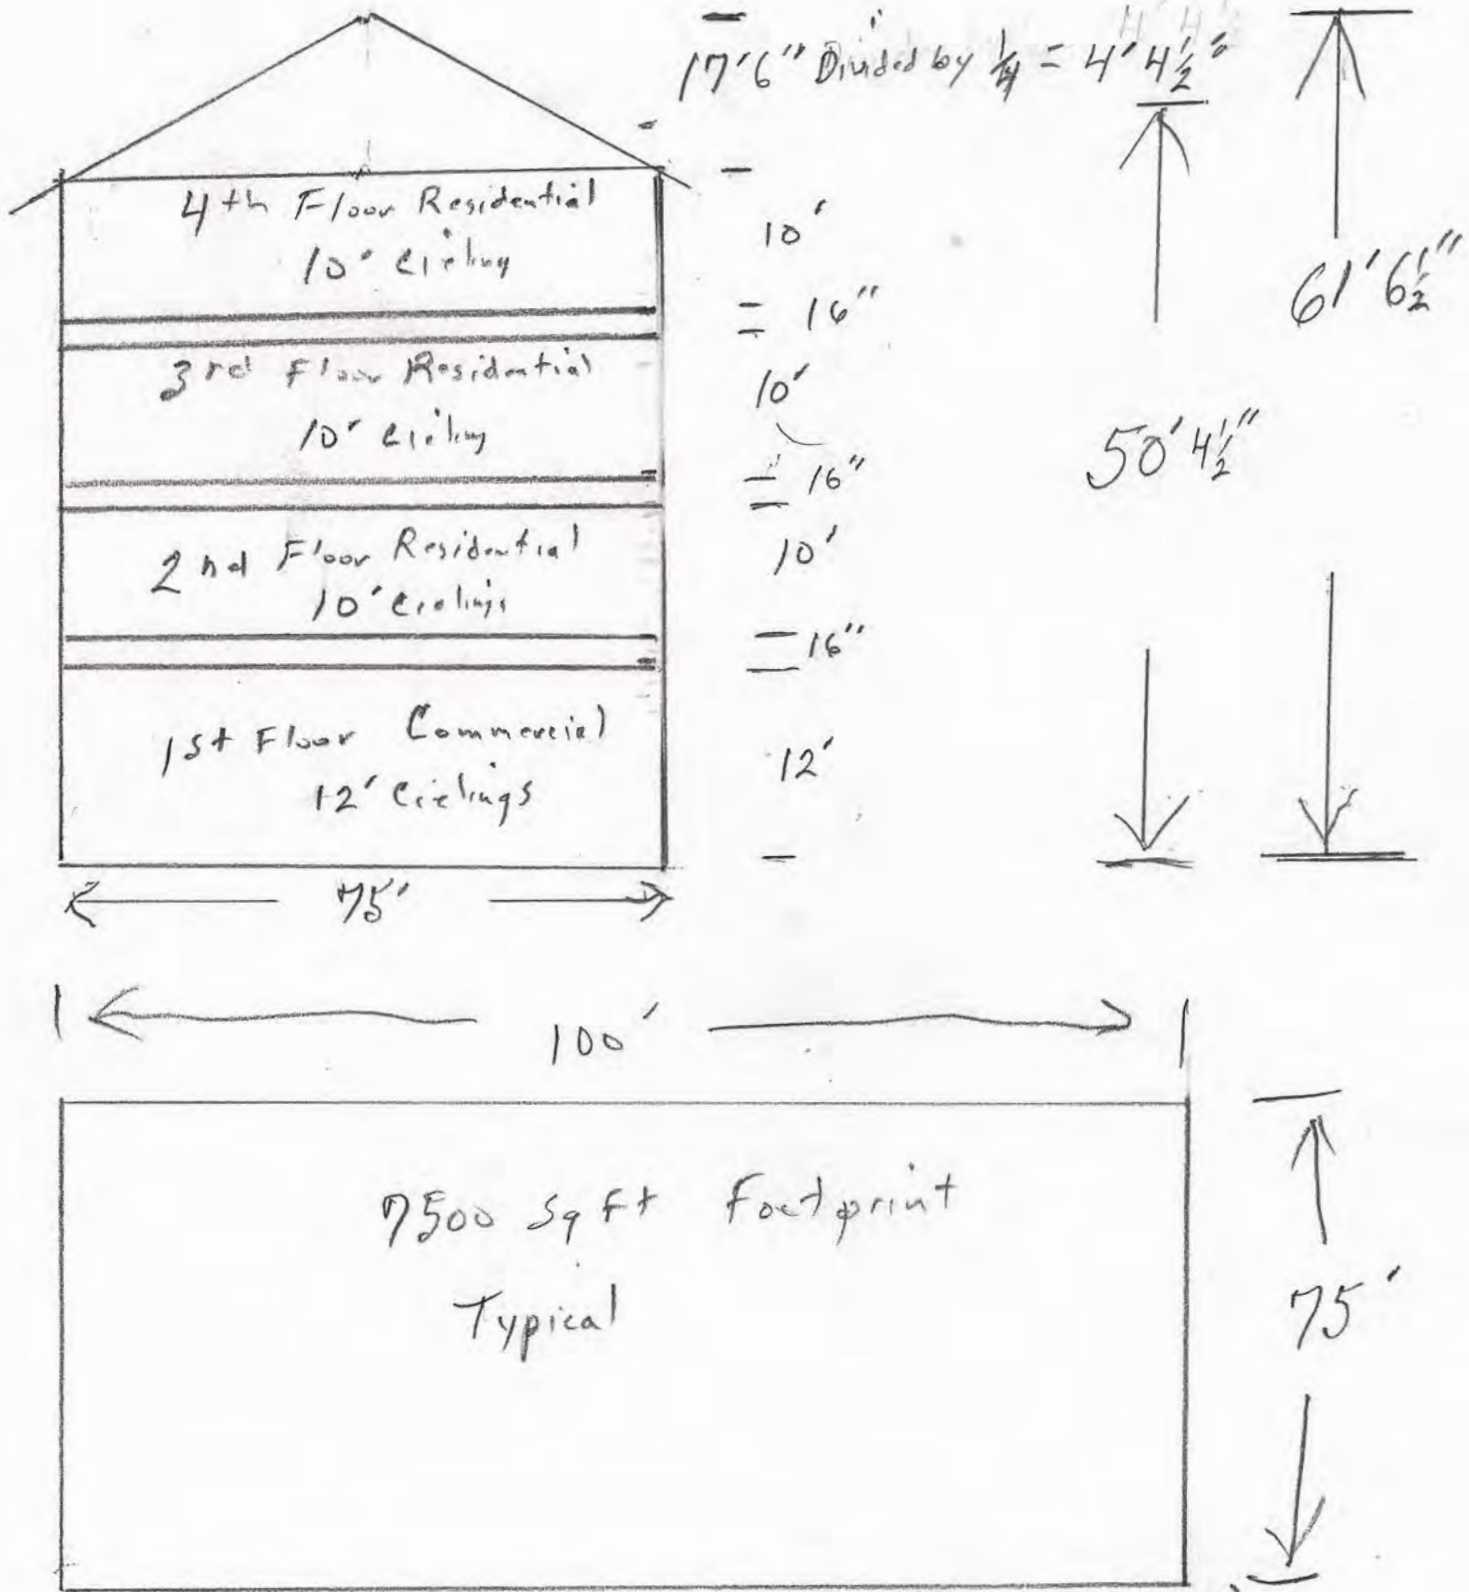 17'6" Divided by 1/4 = 4' 4 1/2"
4th Floor Residential
10' Cieling
10'
61' 6 1/2"
16"
3rd Floor Residential
10' Cieling
10'
50' 4 1/2"
16"
2nd Floor Residential
10' Cielings
10'
16"
1st Floor Commercial
12' Cielings
12'
75'
100'
7500 Sq Ft Footprint
Typical
75'